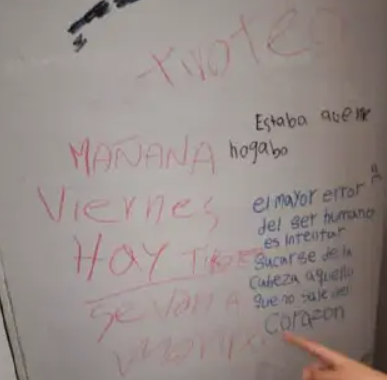 Estaba que me
hogaba
MAÑANA
Viernes
HAY
Se van a
el mayor error
del ser humano
es intentar
sacarse de la
cabeza aquello
que no sale del
corazon